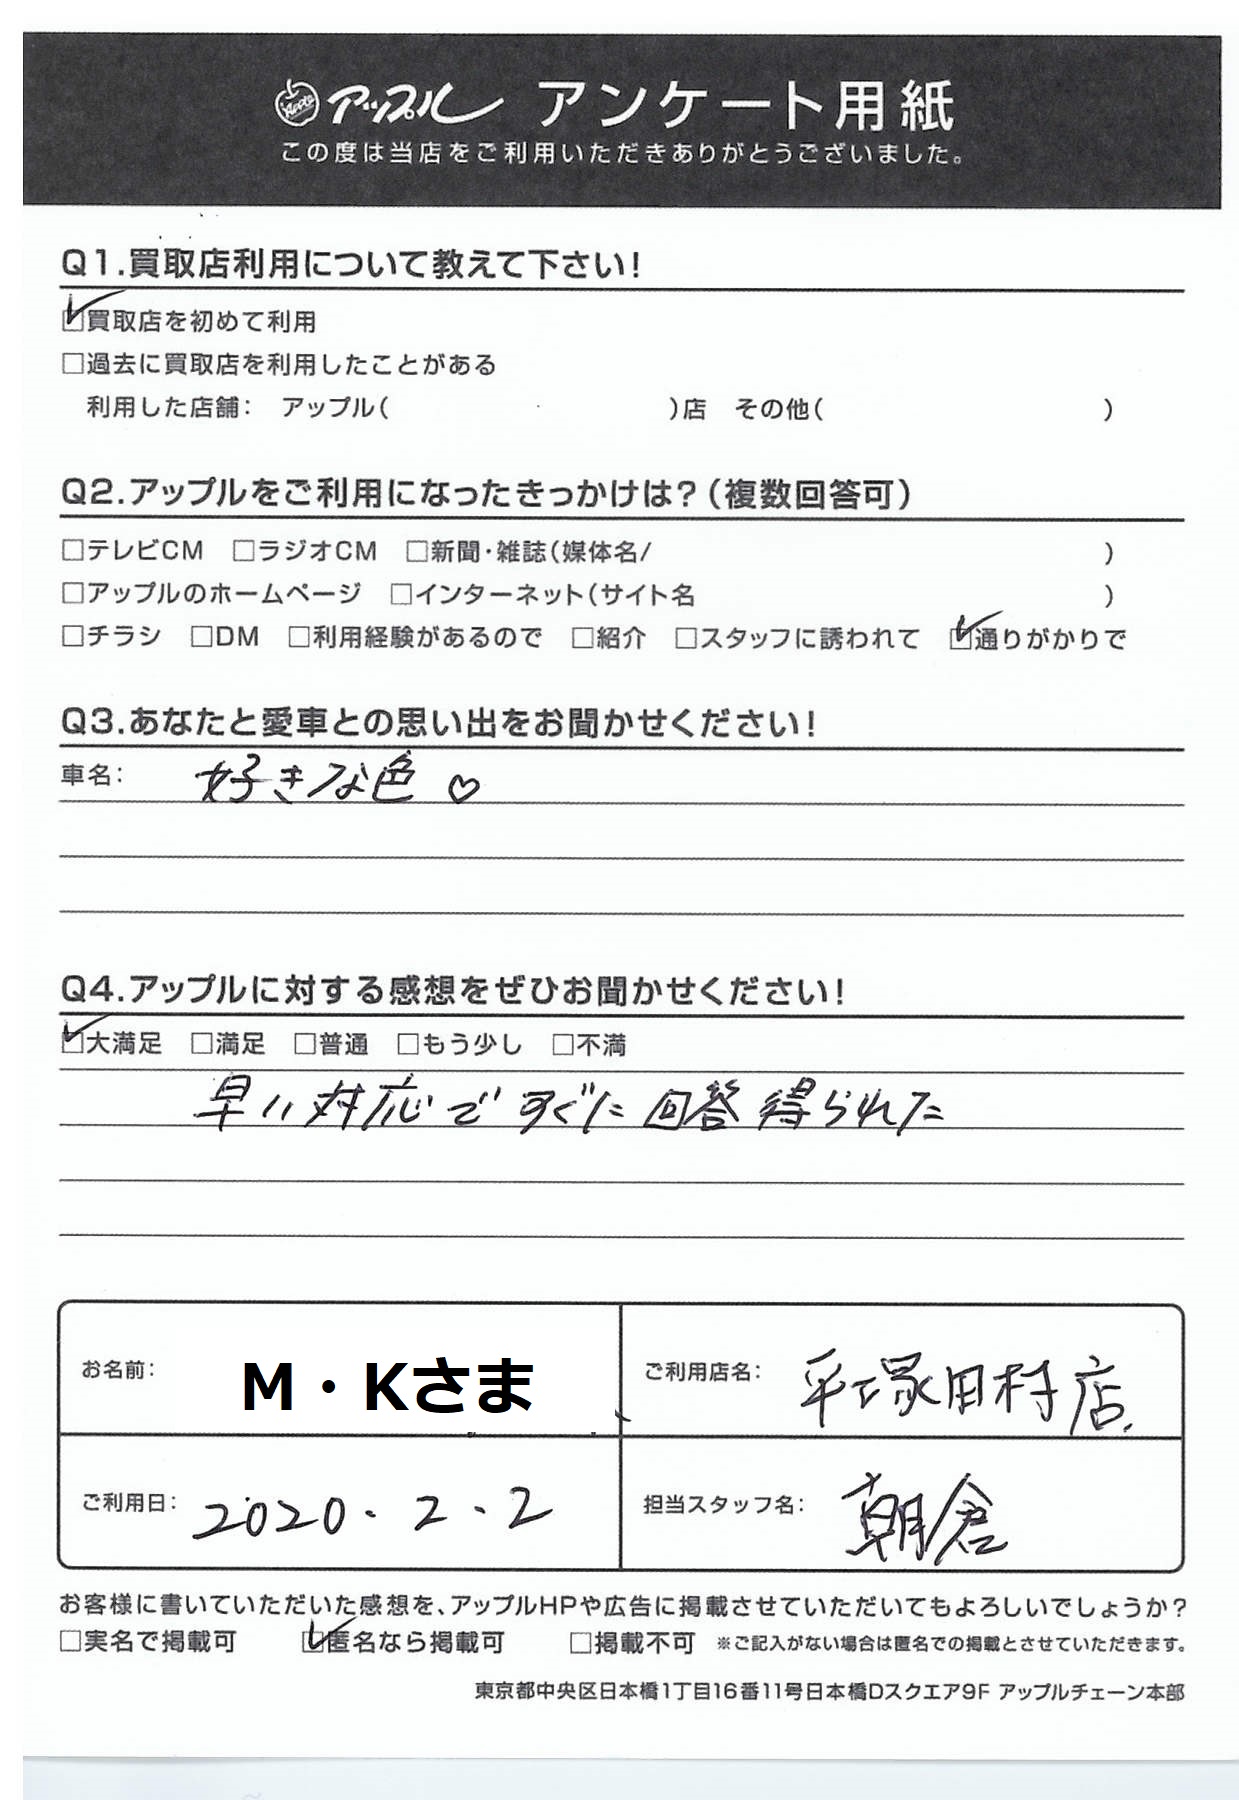 Apple アップル アンケート用紙
この度は当店をご利用いただきありがとうございました。
Q1.買取店利用について教えて下さい!
☑買取店を初めて利用
□過去に買取店を利用したことがある
利用した店舗: アップル( )店 その他( )
Q2.アップルをご利用になったきっかけは?(複数回答可)
□テレビCM □ラジオCM □新聞・雑誌(媒体名/ )
□アップルのホームページ □インターネット(サイト名 )
□チラシ □DM □利用経験があるので □紹介 □スタッフに誘われて ☑通りがかりで
Q3.あなたと愛車との思い出をお聞かせください!
車名: 好きな色♡
Q4.アップルに対する感想をぜひお聞かせください!
☑大満足 □満足 □普通 □もう少し □不満
早い対応ですぐに回答得られた
お名前: M・Kさま
ご利用店名: 平塚田村店.
ご利用日: 2020.2.2
担当スタッフ名: 朝倉
お客様に書いていただいた感想を、アップルHPや広告に掲載させていただいてもよろしいでしょうか?
□実名で掲載可 ☑匿名なら掲載可 □掲載不可 ※ご記入がない場合は匿名での掲載とさせていただきます。
東京都中央区日本橋1丁目16番11号日本橋Dスクエア9F アップルチェーン本部